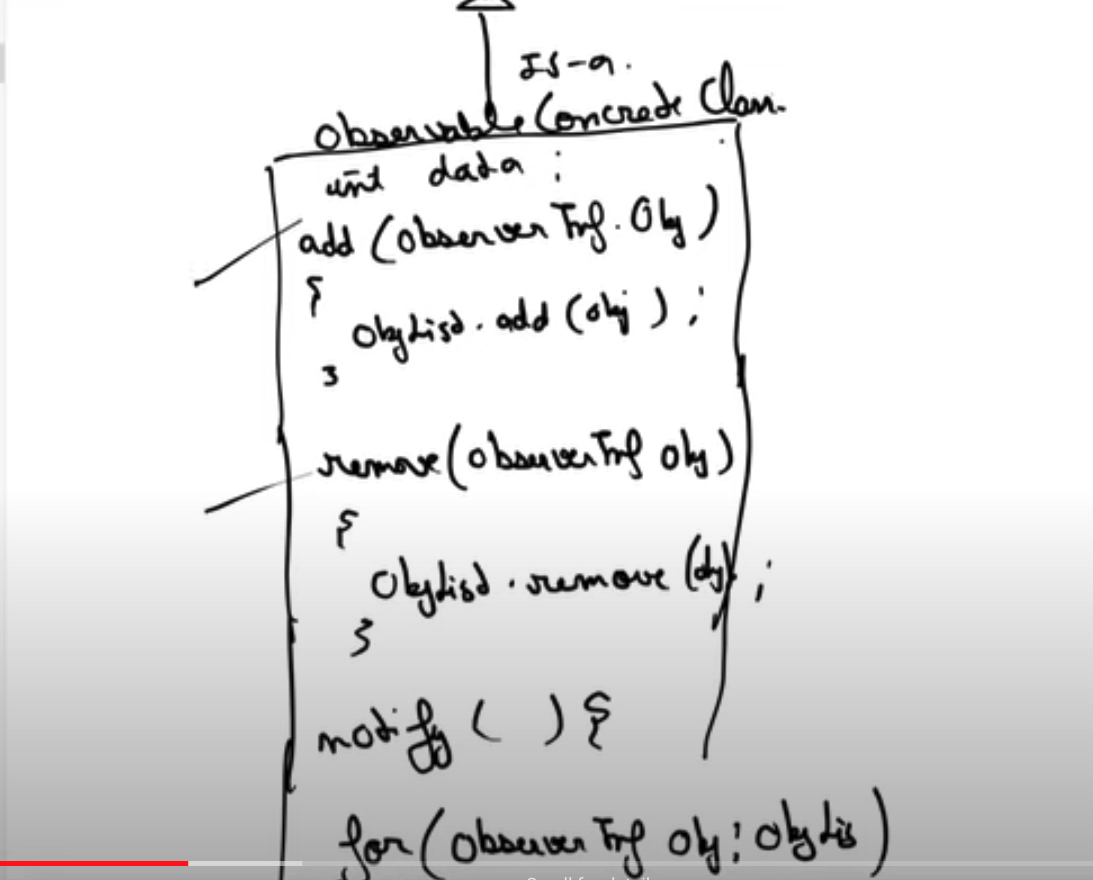 IS-a.
Observable Concrete Class.
int data ;
add (Observer Inf. Obj )
{
ObjList. add (obj ) ;
}
remove(ObserverInf obj)
{
ObjList . remove (obj) ;
}
notify ( ) {
for(Observer Inf obj : ObjLis)